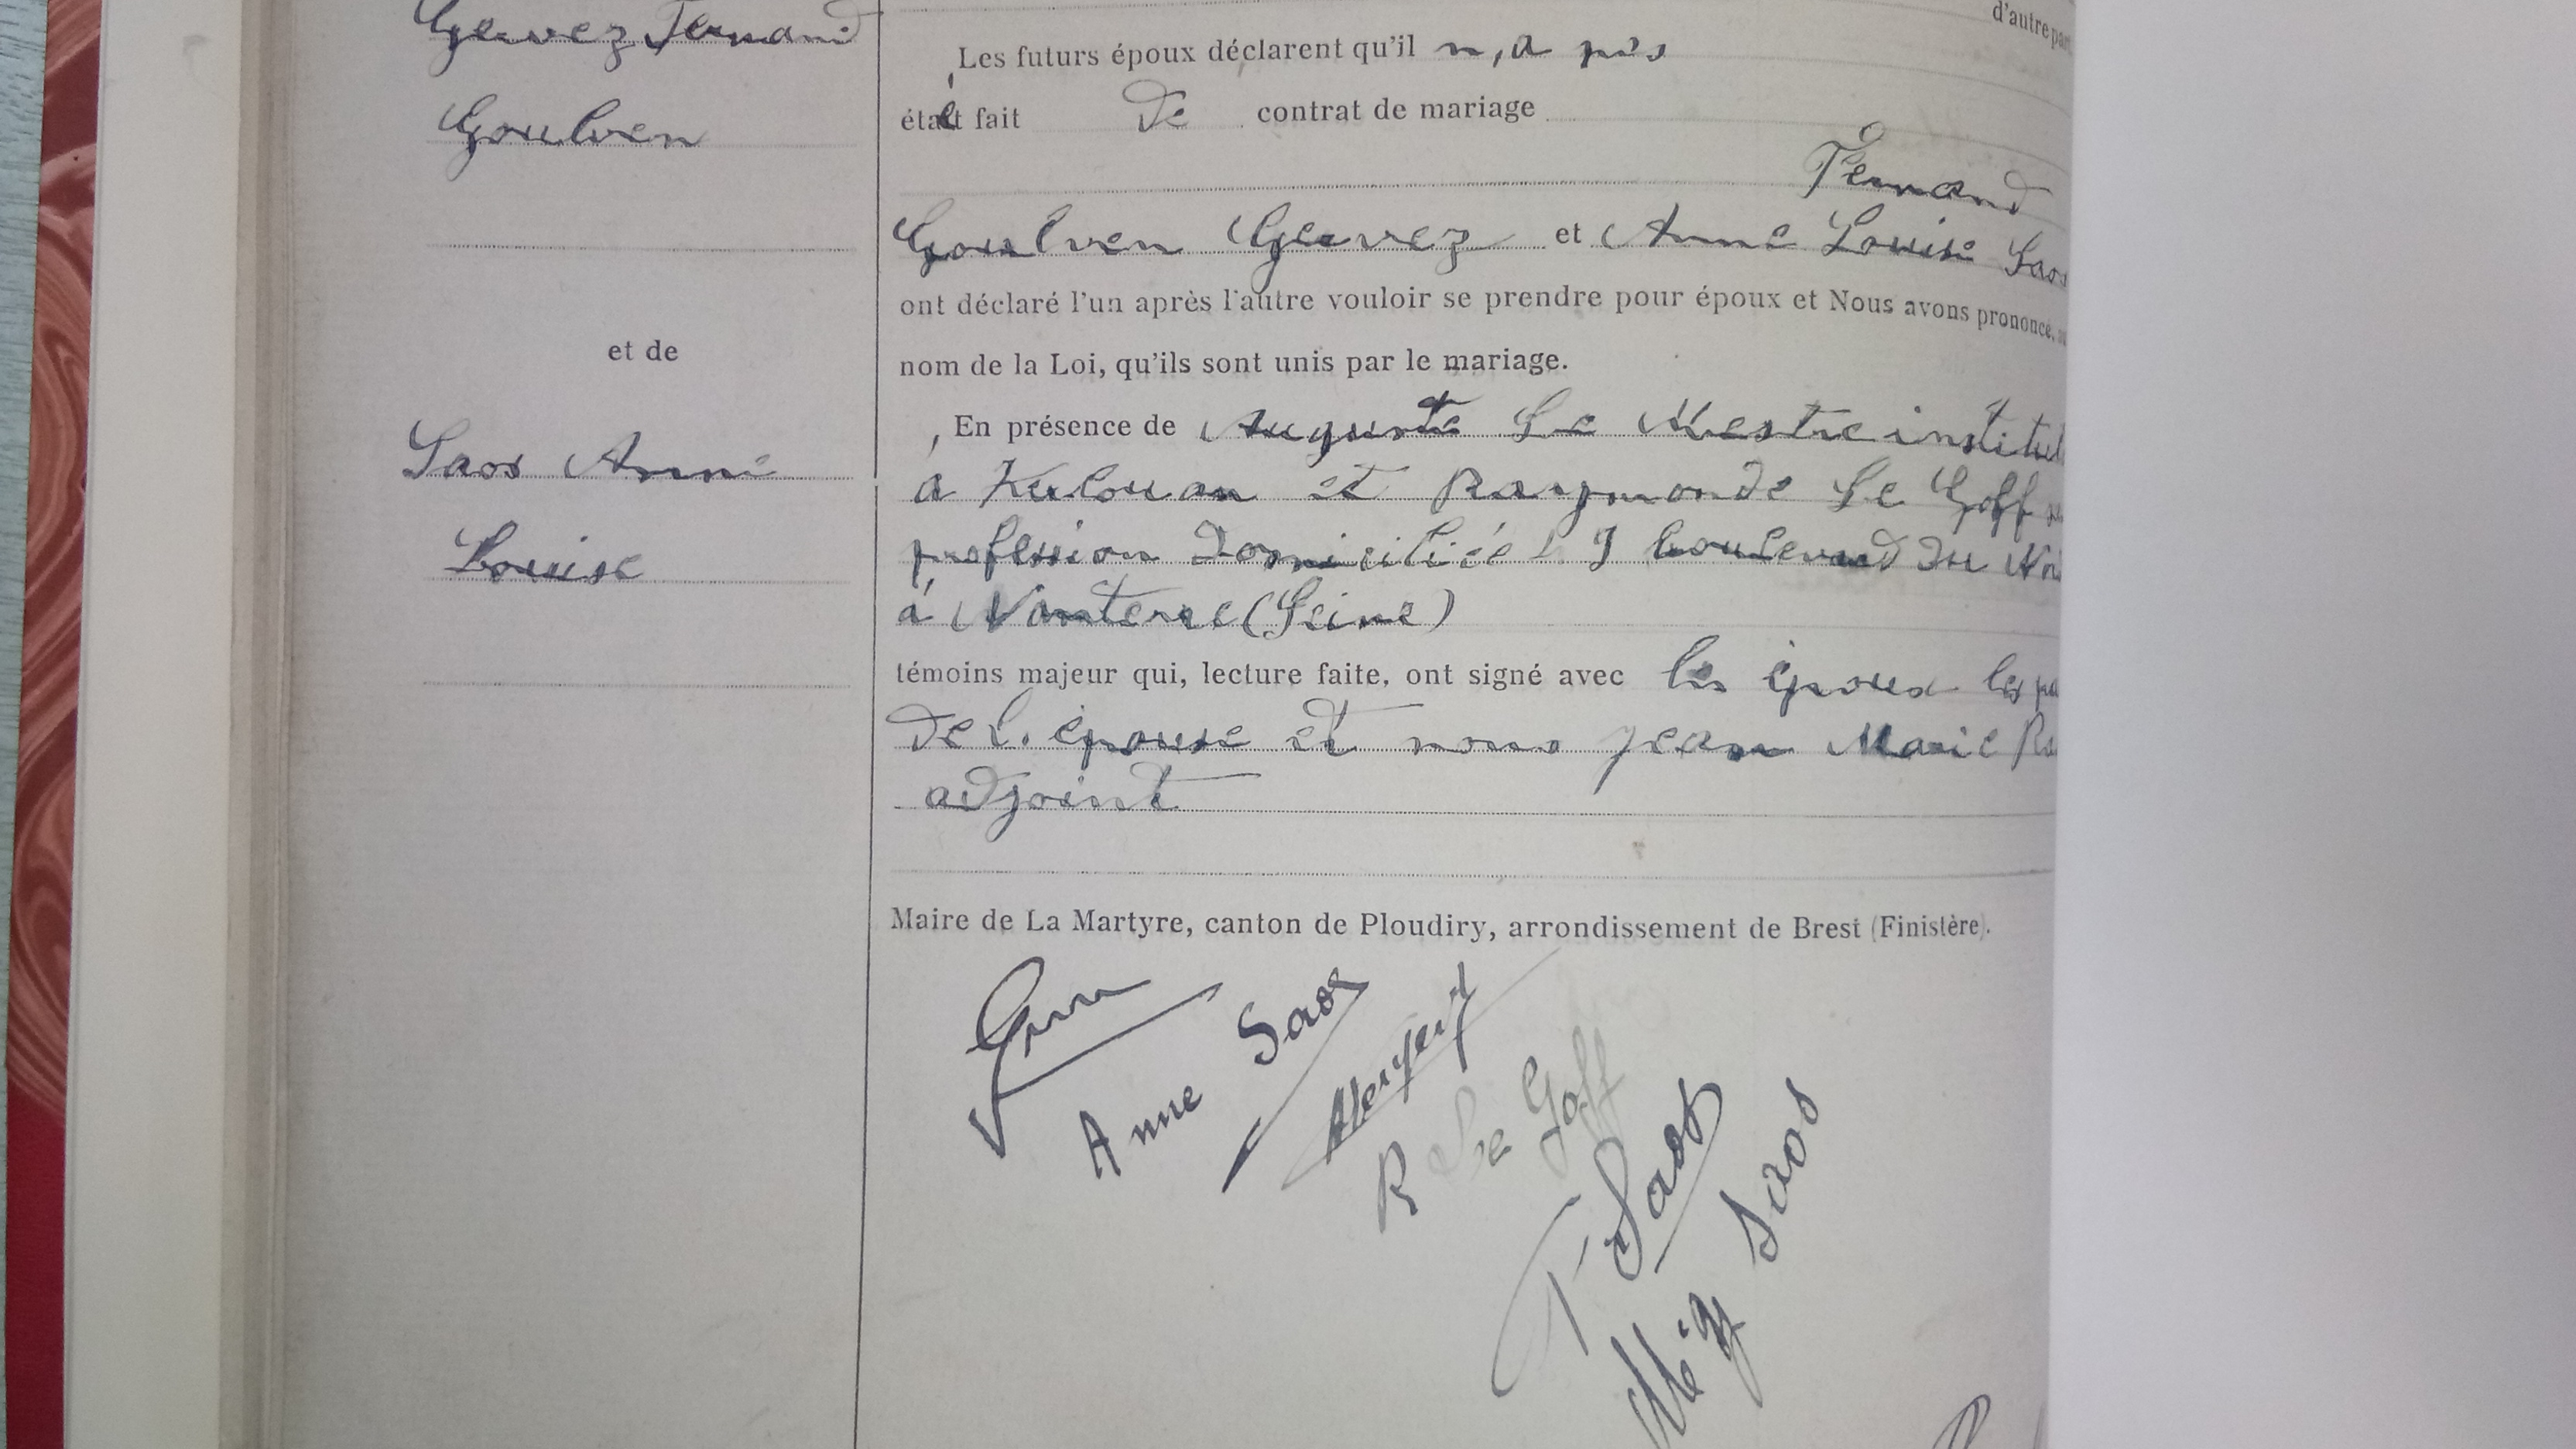 Gervez Fernand
Goulven
et de
Saos Anne
Louise
d'autre part
Les futurs époux déclarent qu'il n,a pas
été fait de contrat de mariage
Fernand
Goulven Gervez et Anne Louise Saos
ont déclaré l'un après l'autre vouloir se prendre pour époux et Nous avons prononcé,
nom de la Loi, qu'ils sont unis par le mariage.
, En présence de Auguste Le Mestre institut
à et Raymonde Le Goff
profession domiciliée boulevard du
à Nanterre (Seine)
témoins majeur qui, lecture faite, ont signé avec les époux les
de l. épouse et nous Jean Marie
adjoint
Maire de La Martyre, canton de Ploudiry, arrondissement de Brest (Finistère).
Anne Saos
R Le Goff
Saos
Saos